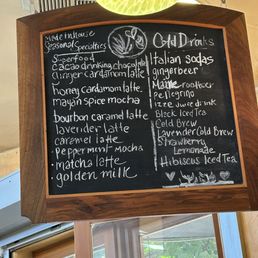 Made in house
Seasonal Specialties
Superfood
Cacao drinking chocolate
Ginger cardamom latte
honey cardamom latte
mayan spice mocha
bourbon caramel latte
lavender latte
caramel latte
Peppermint mocha
• matcha latte
• golden milk
Cold Drinks
Italian sodas
gingerbeer
Maine root beer
Pellegrino
juice drink
Black Iced Tea
Cold Brew
Lavender Cold Brew
Strawberry
Lemonade
Hibiscus Iced Tea